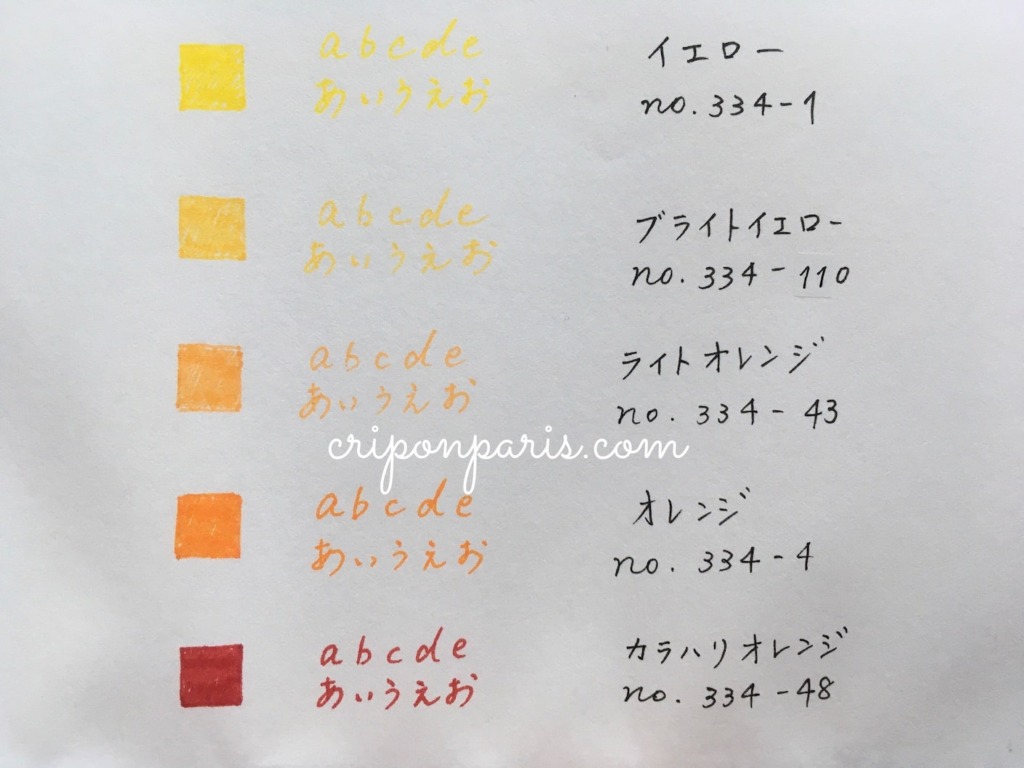 abcde
あいうえお
イエロー
no. 334-1
abcde
あいうえお
ブライトイエロー
no. 334-110
abcde
あいうえお
ライトオレンジ
no. 334-43
criponparis.com
abcde
あいうえお
オレンジ
no. 334-4
abcde
あいうえお
カラハリオレンジ
no. 334-48